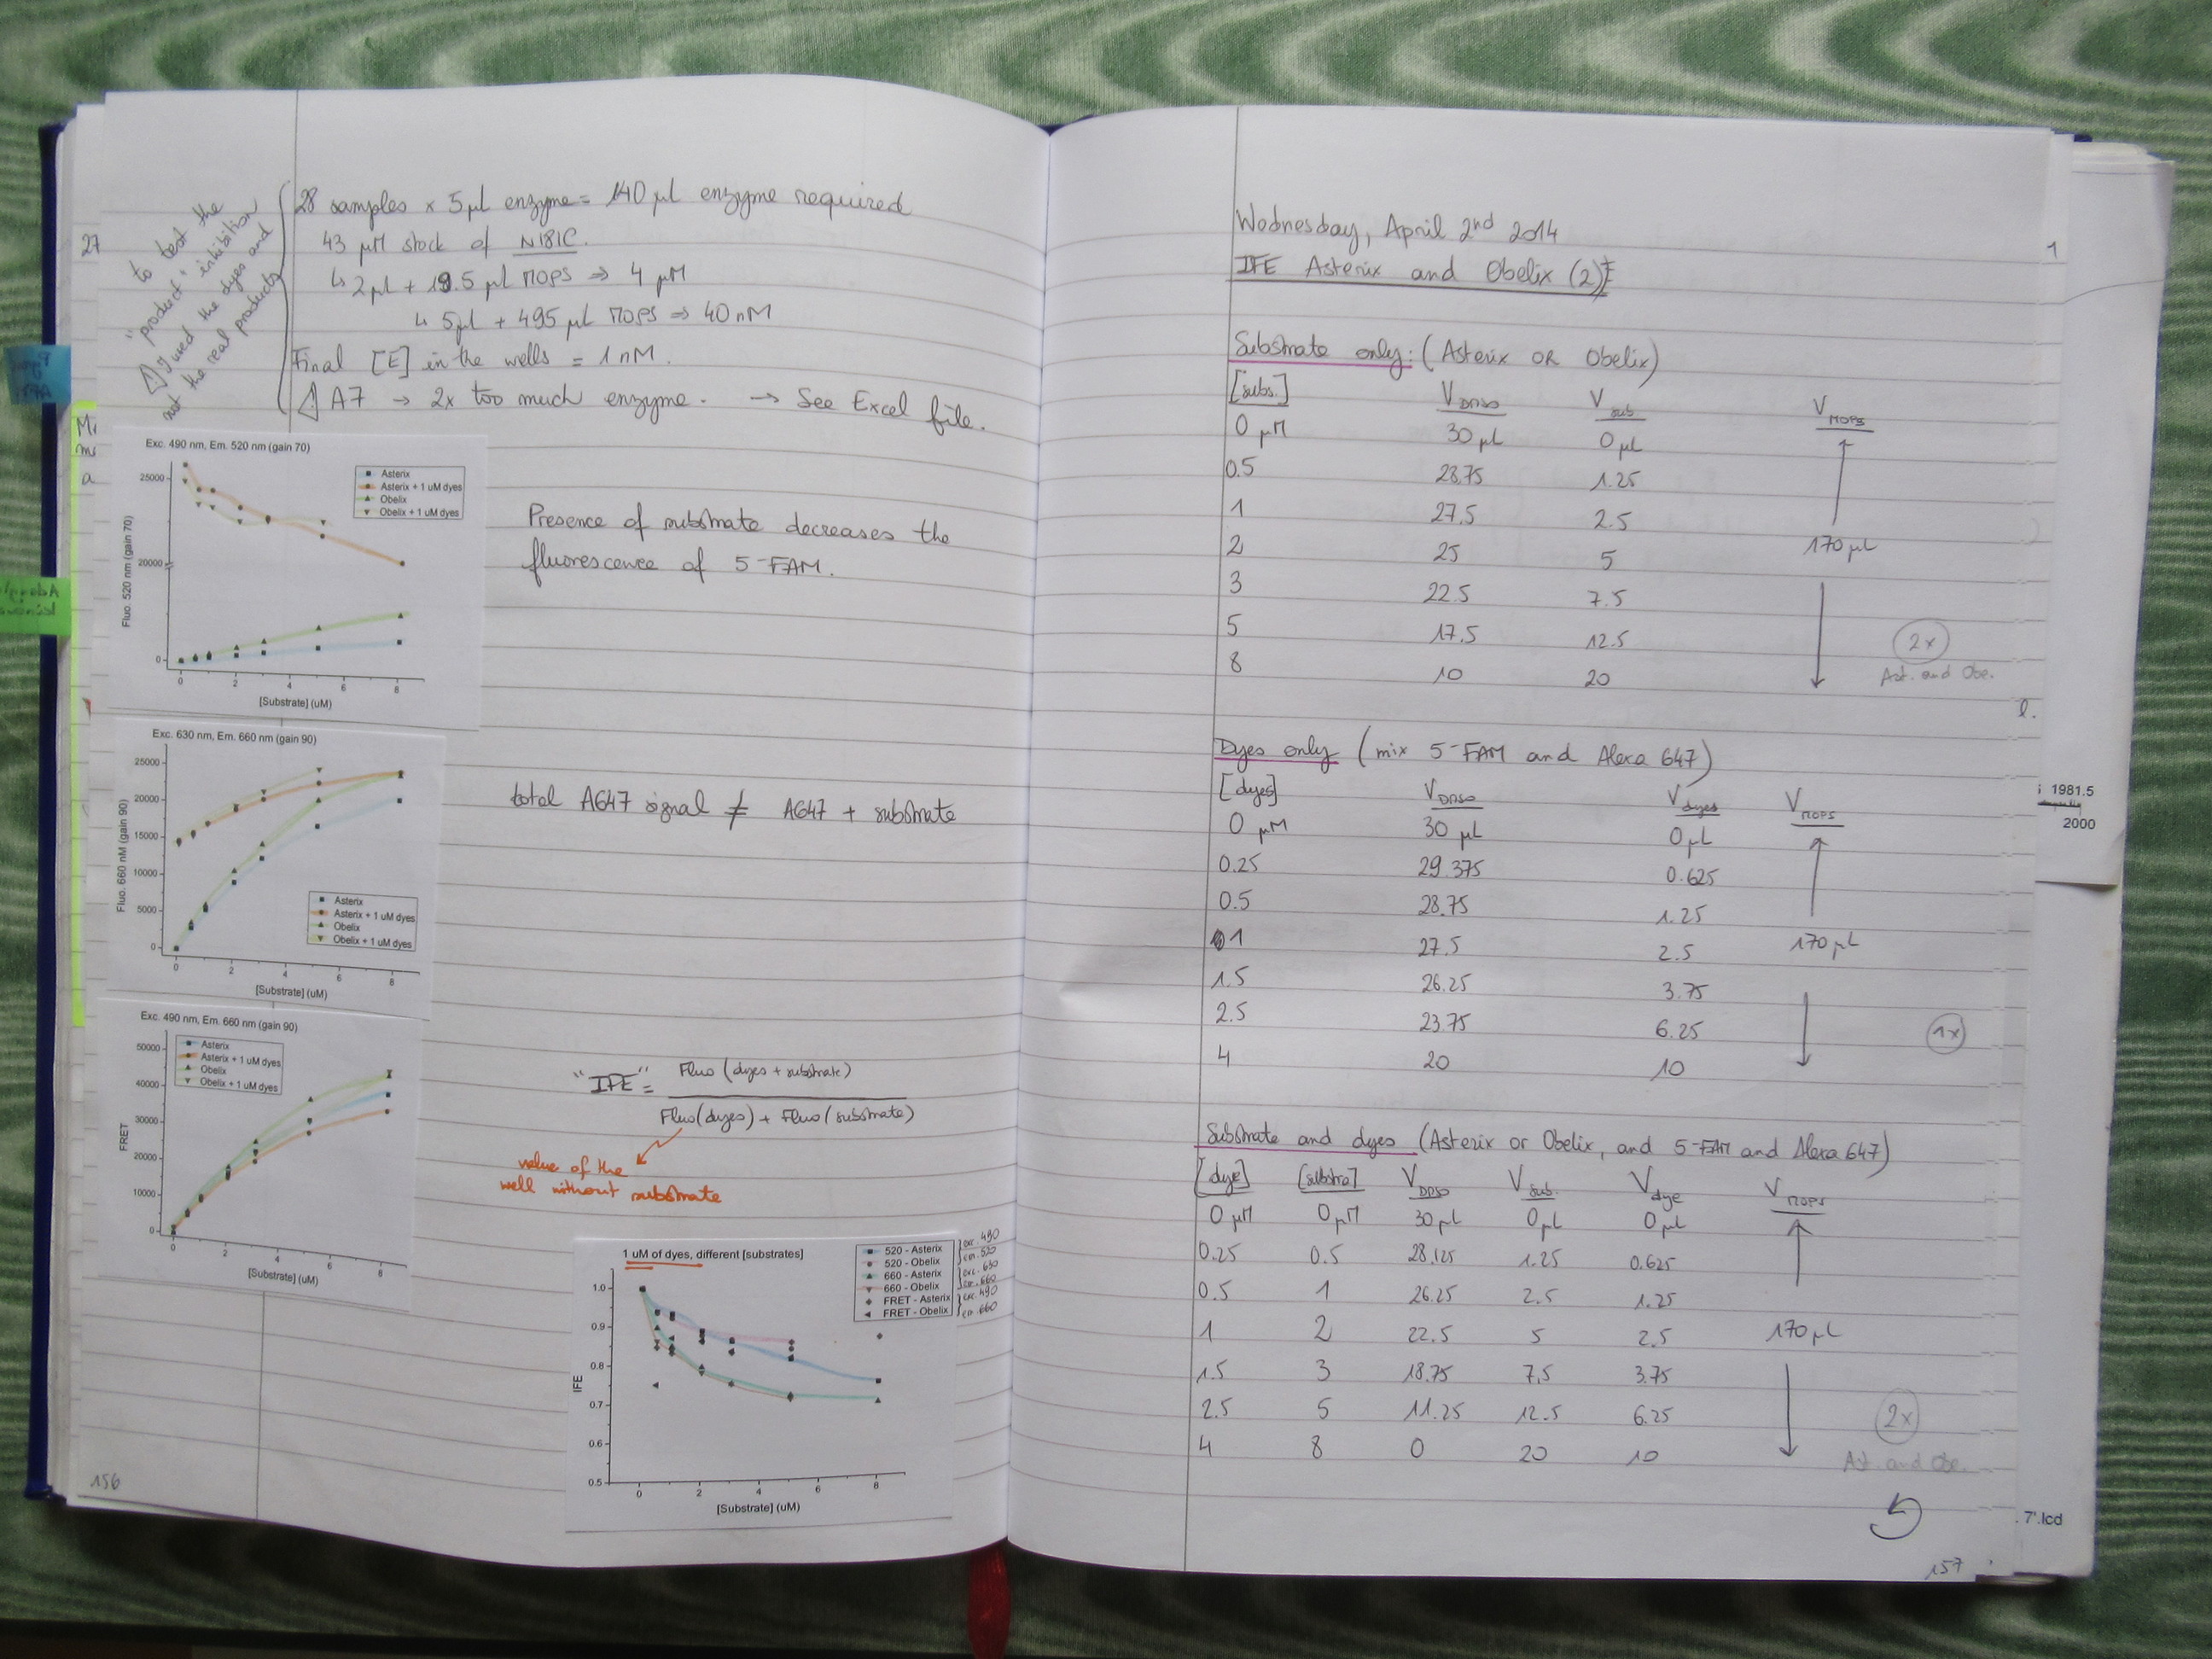 27
to test the
"product" inhibition
⚠ I used the dyes and
not the real products
28 samples x 5 µl enzyme = 140 µl enzyme required
43 µM stock of N181C.
↳ 2µl + 19.5 µl MOPS ⇒ 4 µM
↳ 5µl + 495 µl MOPS ⇒ 40 nM
Final [E] in the wells = 1 nM.
⚠ A7 → 2x too much enzyme. → See Excel file.
Exc. 490 nm, Em. 520 nm (gain 70)
Asterix
Asterix + 1 uM dyes
Obelix
Obelix + 1 uM dyes
25000
20000
0
Fluo. 520 nm (gain 70)
0 2 4 6 8
[Substrate] (uM)
Presence of substrate decreases the
fluorescence of 5-FAM.
Exc. 630 nm, Em. 660 nm (gain 90)
25000
20000
15000
10000
5000
0
Fluo. 660 nM (gain 90)
Asterix
Asterix + 1 uM dyes
Obelix
Obelix + 1 uM dyes
0 2 4 6 8
[Substrate] (uM)
total A647 signal ≠ A647 + substrate
Exc. 490 nm, Em. 660 nm (gain 90)
Asterix
Asterix + 1 uM dyes
Obelix
Obelix + 1 uM dyes
50000
40000
30000
20000
10000
0
FRET
0 2 4 6 8
[Substrate] (uM)
"IFE" = Fluo (dyes + substrate)
Fluo(dyes) + Fluo(substrate)
value of the
well without substrate
1 uM of dyes, different [substrates]
520 - Asterix
520 - Obelix
660 - Asterix
660 - Obelix
FRET - Asterix
FRET - Obelix
exc. 490
em. 520
exc. 630
em. 660
exc. 490
em. 660
1.0
0.9
0.8
0.7
0.6
0.5
IFE
0 2 4 6 8
[Substrate] (uM)
156
Wednesday, April 2nd 2014
IFE Asterix and Obelix (2)
Substrate only: (Asterix OR Obelix)
[subs.] V DMSO V sub V MOPS
0 µM 30 µL 0 µL
0.5 28.75 1.25
1 27.5 2.5
2 25 5 170 µL
3 22.5 7.5
5 17.5 12.5 2x
8 10 20 Ast. and Obe.
Dyes only (mix 5-FAM and Alexa 647)
[dyes] V DMSO V dyes V MOPS
0 µM 30 µL 0 µL
0.25 29.375 0.625
0.5 28.75 1.25
1 27.5 2.5 170 µL
1.5 26.25 3.75
2.5 23.75 6.25 1x
4 20 10
Substrate and dyes (Asterix or Obelix, and 5-FAM and Alexa 647)
[dye] [substra] V DMSO V sub. V dye V MOPS
0 µM 0 µM 30 µL 0 µL 0 µL
0.25 0.5 28.125 1.25 0.625
0.5 1 26.25 2.5 1.25
1 2 22.5 5 2.5 170 µL
1.5 3 18.75 7.5 3.75
2.5 5 11.25 12.5 6.25 2x
4 8 0 20 10 Ast. and Obe.
157
1
l.
1981.5
2000
7'.lcd